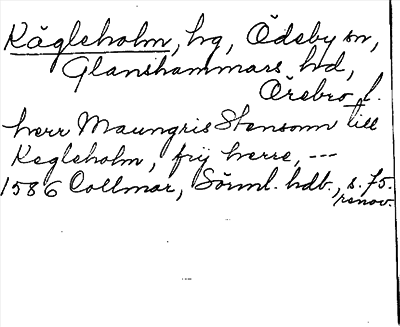 Kägleholm, hg, Ödeby sn,
Glanshammars hd,
Örebro l.
herr Maungris Stensonn till
Kegleholm, frij herre, ---
1586 Collmar, Sörml. hdb., s. 75.
renov.